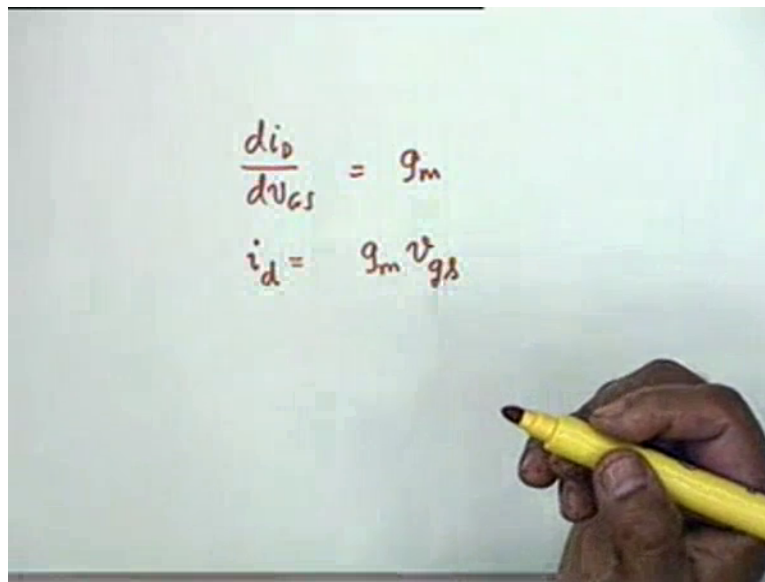 di_D / dv_GS = g_m
i_d = g_m v_gs